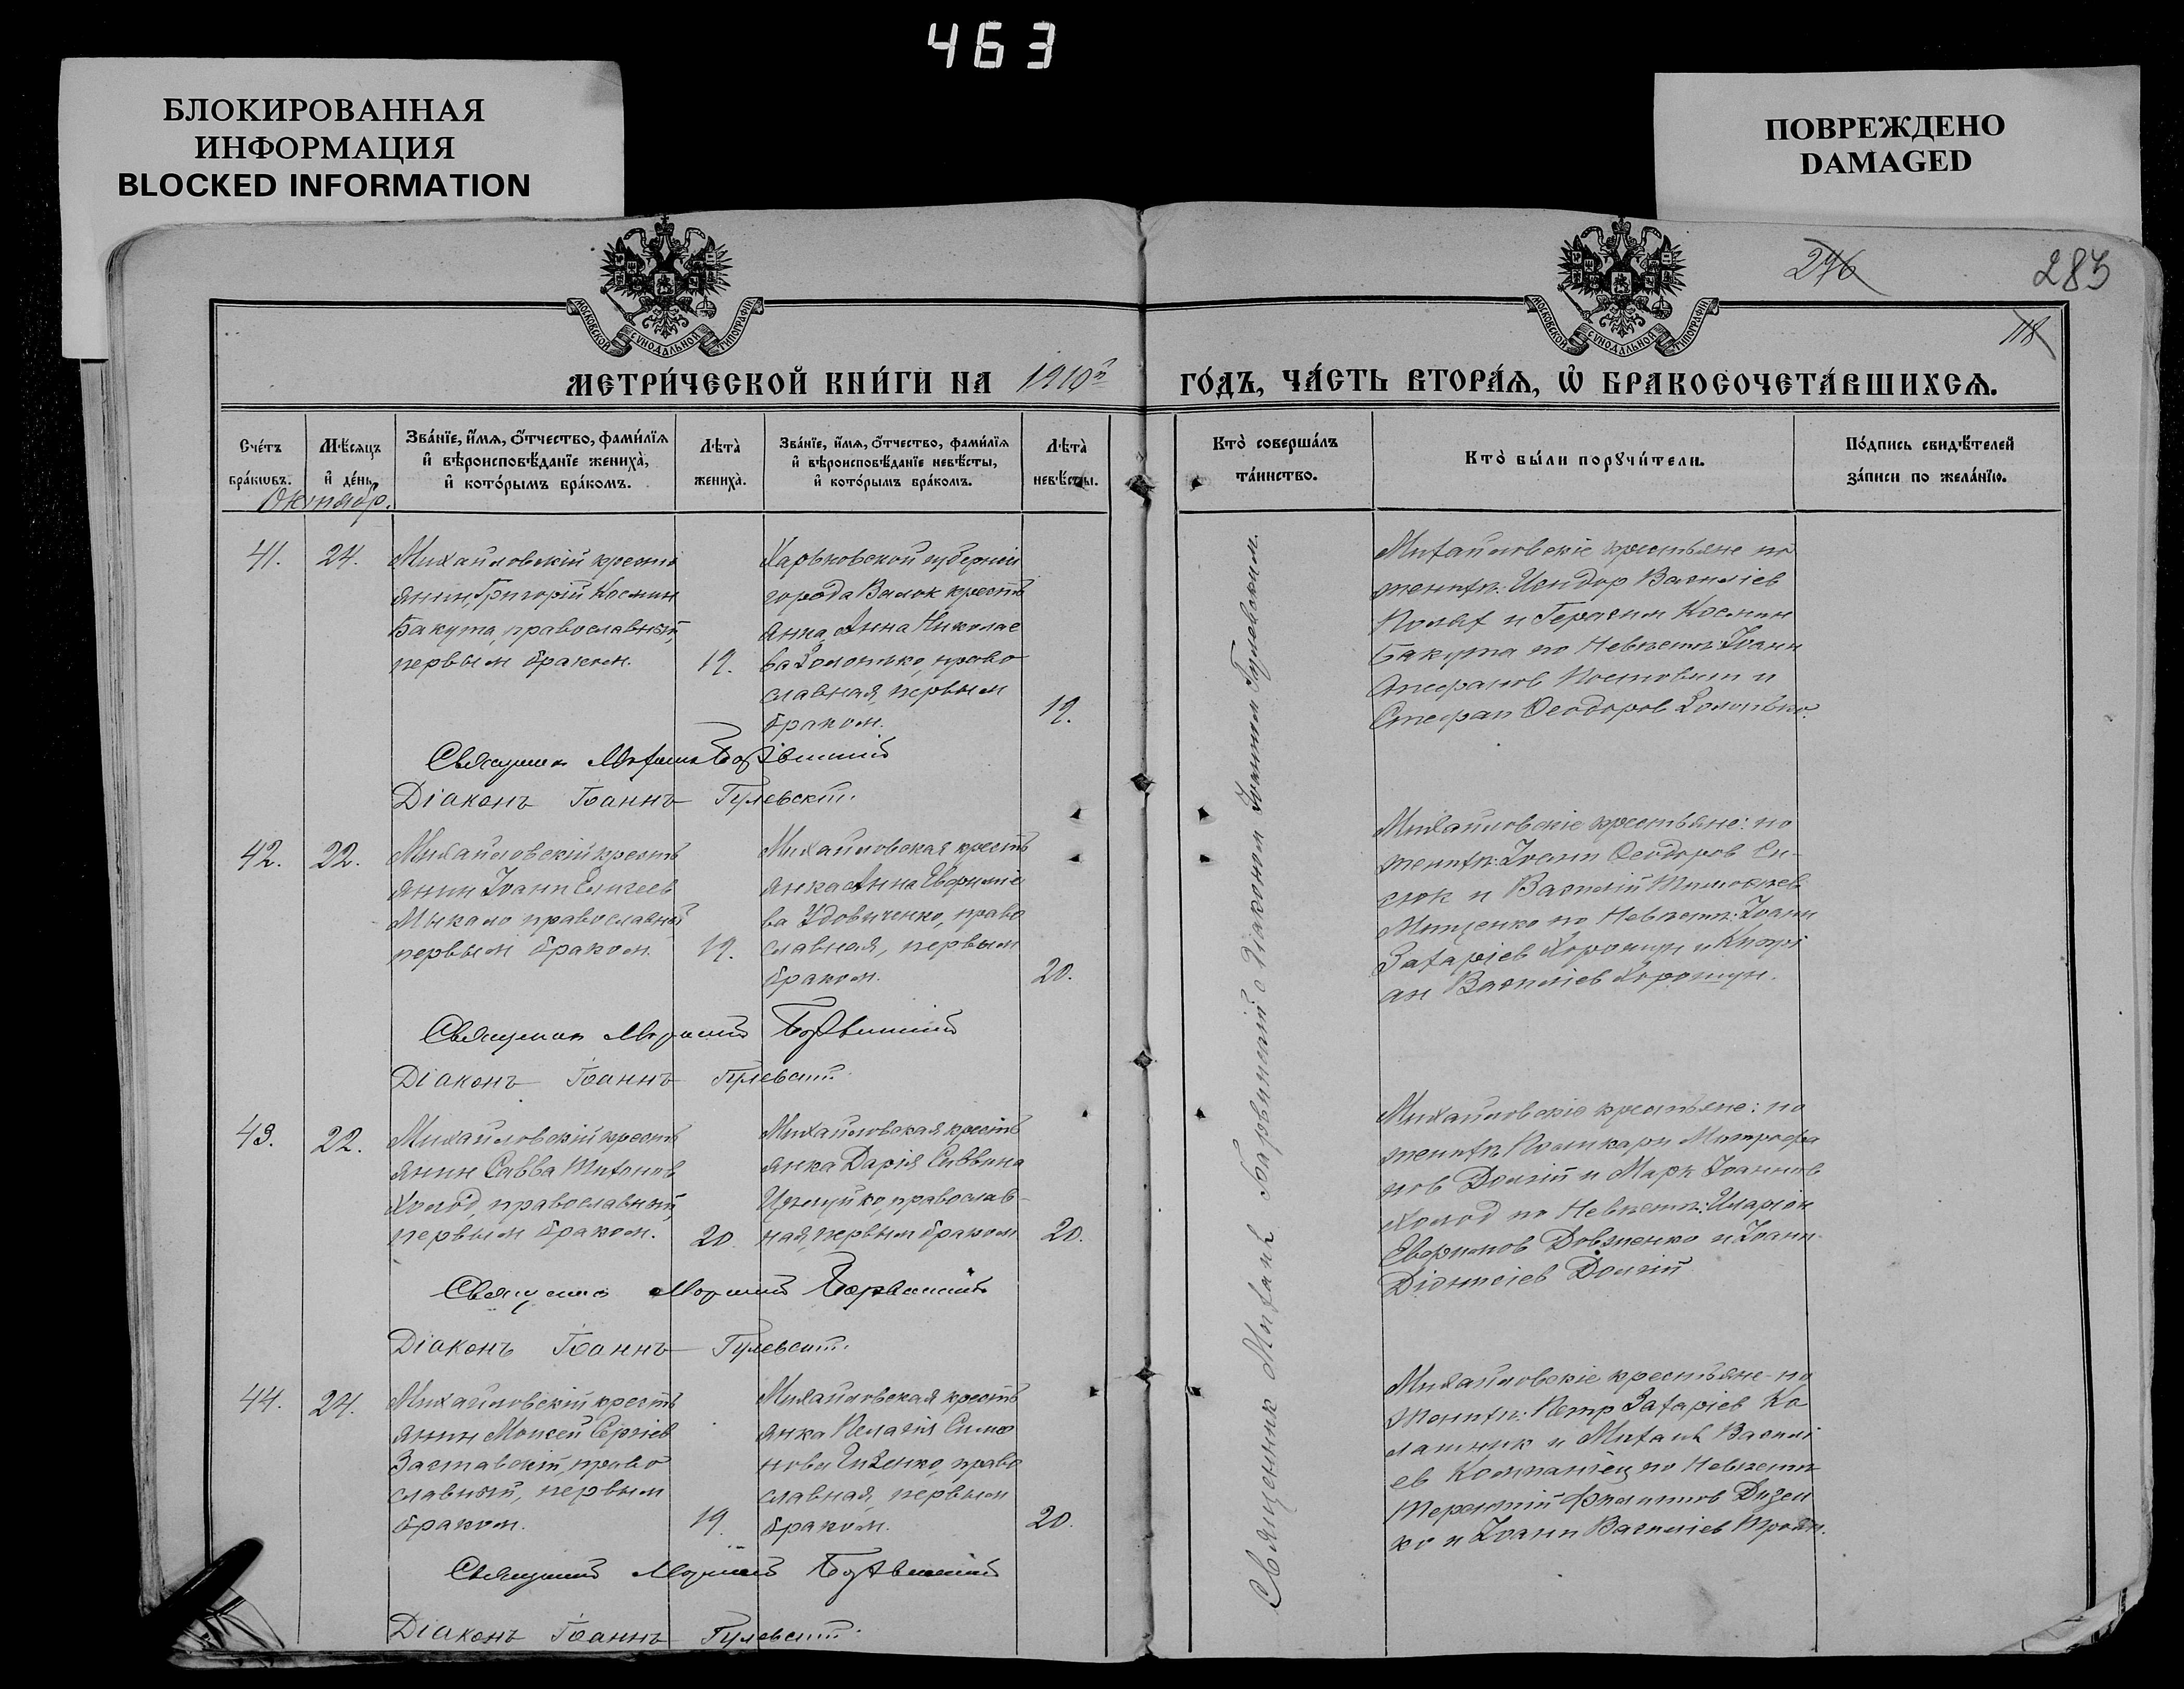 463
БЛОКИРОВАННАЯ
ИНФОРМАЦИЯ
BLOCKED INFORMATION
ПОВРЕЖДЕНО
DAMAGED
276
283
118
МОСКОВСКОЙ СѴНОДАЛЬНОЙ ТИПОГРАФІИ
МОСКОВСКОЙ СѴНОДАЛЬНОЙ ТИПОГРАФІИ
МЕТРИ́ЧЕСКОЙ КНИ́ГИ НА 1910й
ГО́ДЪ, ЧА́СТЬ ВТОРА́Ѧ, Ѡ҆ БРАКОСОЧЕТА́ВШИХСѦ.
Сче́тъ
бра́кѡвъ.
Мѣ́сяцъ
и҆ де́нь.
Зва́нїе, и҆́мѧ, ѻ҆́тчество, фами́лїѧ
и҆ вѣроисповѣ́данїе жениха̀,
и҆ кото́рымъ бра́комъ.
Лѣ́та̀
жениха̀.
Зва́нїе, и҆́мѧ, ѻ҆́тчество, фами́лїѧ
и҆ вѣроисповѣ́данїе невѣ́сты,
и҆ кото́рымъ бра́комъ.
Лѣ́та̀
невѣ́сты.
Кто̀ соверша́лъ
та́инство.
Кто̀ бы́ли порꙋчи́тели.
По́дпись свидѣ́телей
за́писи по жела́нїю.
Октябр.
41.
24.
Михайловскій кресть
янин, Григорій Космин
Бакута, православный,
первым браком.
19.
Харьковской губерніи
города Валок кресть
янка, Анна Николае
ва Золотько, право
славная, первым
браком.
19.
Михайловскіе крестьяне по
женихѣ: Исидор Василіев
и Герасим Космин
Бакута по Невѣстѣ: Іоанн
Стефанов и
Стефан Ѳеодоров Золотько.
Священник
Діаконъ Іоаннъ Гулевскій.
42.
22.
Михайловскій кресть
янин Іоанн Елисеев
Мыкало православный
первым браком.
19.
Михайловская кресть
янка Анна Евфиміе
ва Удовиченко, право
славная, первым
браком.
20.
Михайловскіе крестьяне: по
женихѣ: Іоанн Ѳеодоров Си-
сюк и Василій Тимофеев
Мищенко по Невѣстѣ: Іоанн
Захаріев Хорошун и Кипрі
ан Василіев Хорошун.
Священник
Діаконъ Іоаннъ Гулевскій.
43.
22.
Михайловскій кресть
янин Савва Тихонов
Холод, православный,
первым браком.
20.
Михайловская кресть
янка Дарія Саввина
православ-
ная, первым браком
20.
Михайловскіе крестьяне: по
женихѣ Поликарп Митрофа
нов Долгій и Марк Іоаннов
Холод по Невѣстѣ: Иларіон
Евфимов Довженко и Іоанн
Діонисіев Долгій
Священник
Діаконъ Іоаннъ Гулевскій.
44.
24.
Михайловскій кресть
янин Моисей Сергіев
Заставскій, право
славный, первым
браком.
19.
Михайловская кресть
янка Пелагія Симо
нова право
славная, первым
браком.
20.
Михайловскіе крестьяне по
женихѣ: Петр Захаріев Ко
лашник и Михаил Василі
ев Компаніец по Невѣстѣ
Терентій Филиппов Дизен
ко и Іоанн Василіев
Священник
Діаконъ Іоаннъ Гулевскій.
Священник Михаил Барвинскій с діаконом Іоанном Гулевским.